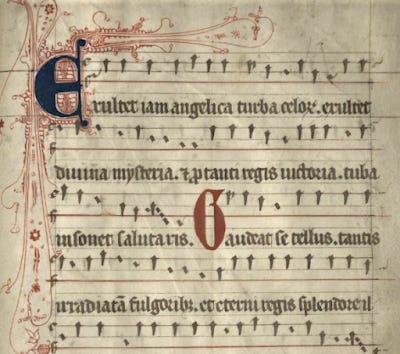 Exultet iam angelica turba celoꝝ. exultet
divina mysteria. ⁊ ꝓ tanti regis victoria. tuba
insonet salutaris. Gaudeat se tellus. tantis
irradiatā fulgoribꝫ. et eterni regis splendore il